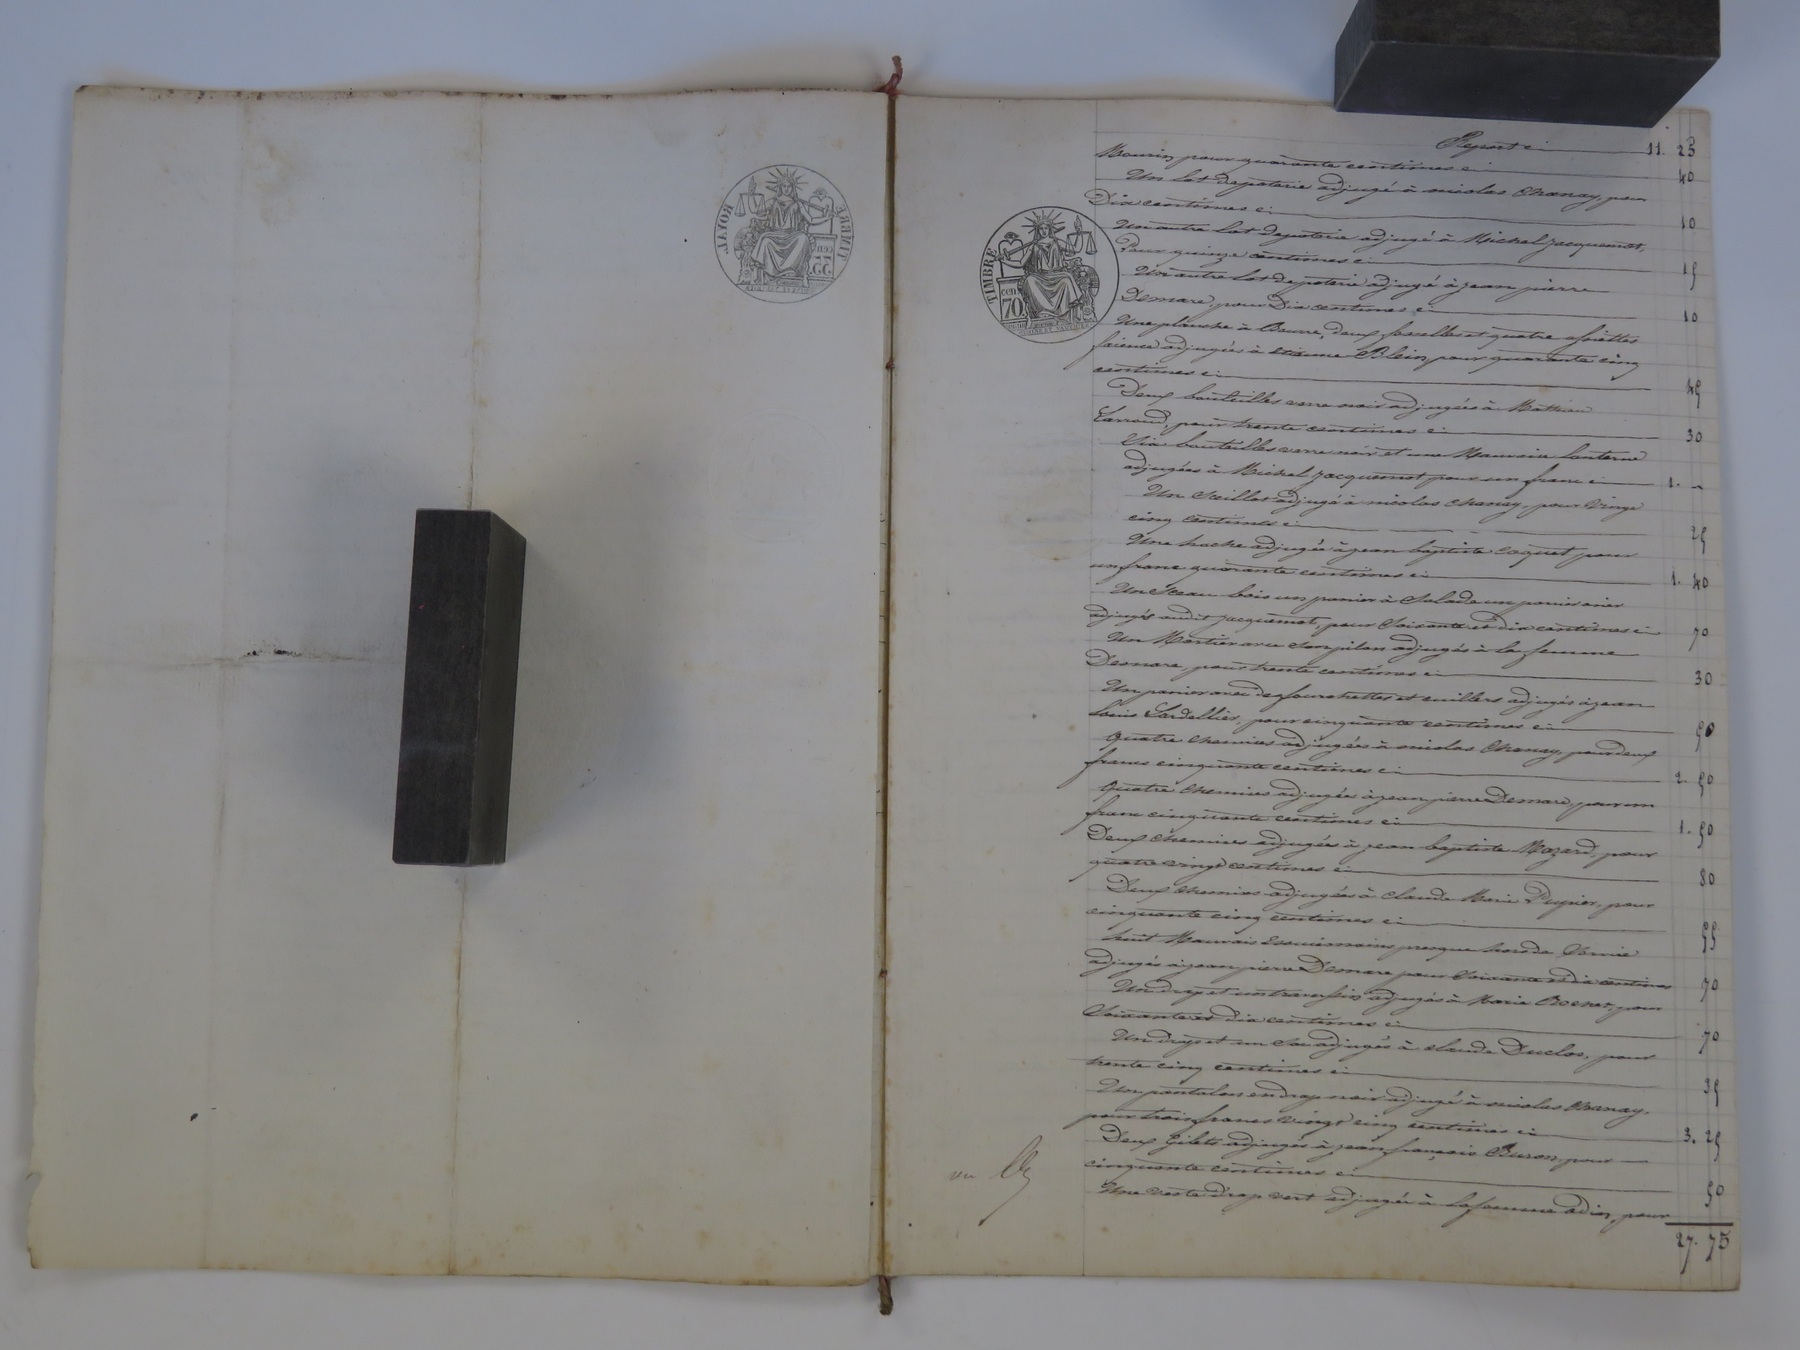 TIMBRE ROYAL
TIMBRE
70
Report ci 11. 23
pour quarante centimes ci 40
Un lot de poterie adjugé à nicolas Chanay, pour
Dix centimes ci 10
Un autre lot de poterie adjugé à Michel Jacquemot,
Pour quinze centimes ci 15
Un autre lot de poterie adjugé à jean pierre
Demare, pour Dix centimes ci 10
Une planche à Beurre, deux et quatre assiettes
faience adjugées à etienne Blein, pour quarante cinq
centimes ci 45
Deux bouteilles verre noir adjugées à Mathieu
pour trente centimes ci 30
Six bouteilles verre noir et une Mauvaise lanterne
adjugées à Michel Jacquemot pour un franc ci 1. -
Un Seillot adjugé à nicolas Chanay, pour Vingt
cinq centimes ci 25
Une hache adjugée à jean baptiste Coquet pour
un franc quarante centimes ci 1. 40
Un Seau bois un panier à Salade un panier osier
adjugés audit jacquemot, pour Soixante et dix centimes ci 70
Un Mortier avec Son pilon adjugés à la femme
Demare, pour trente centimes ci 30
Un panier avec des fourchettes et cuillers adjugés à jean
louis Sardellier, pour cinquante centimes ci 50
quatre chemises adjugées à nicolas Chanay, pour deux
francs cinquante centimes ci 2. 50
quatre Chemises adjugées à jean pierre Demare, pour un
franc cinquante centimes ci 1. 50
Deux chemises adjugées à jean baptiste Mozard, pour
quatre vingt centimes ci 80
Deux chemises adjugées à claude Marie Pugnier, pour
cinquante cinq centimes ci 55
huit Mauvais Essuiemains presque hors de Service
adjugés à jean pierre Demare pour Soixante et dix centimes 70
Un drap et un traversin adjugés à Marie Bochet, pour
Soixante et dix centimes ci 70
Un drap et un Sac adjugés à claude Duclos, pour
trente cinq centimes ci 35
Un pantalon en drap noir adjugé à nicolas Chanay,
pour trois francs vingt cinq centimes ci 3. 25
Deux Gilets adjugés à jean françois Buron, pour
cinquante centimes ci 50
Une veste drap vert adjugée à la femme adin, pour
27. 75